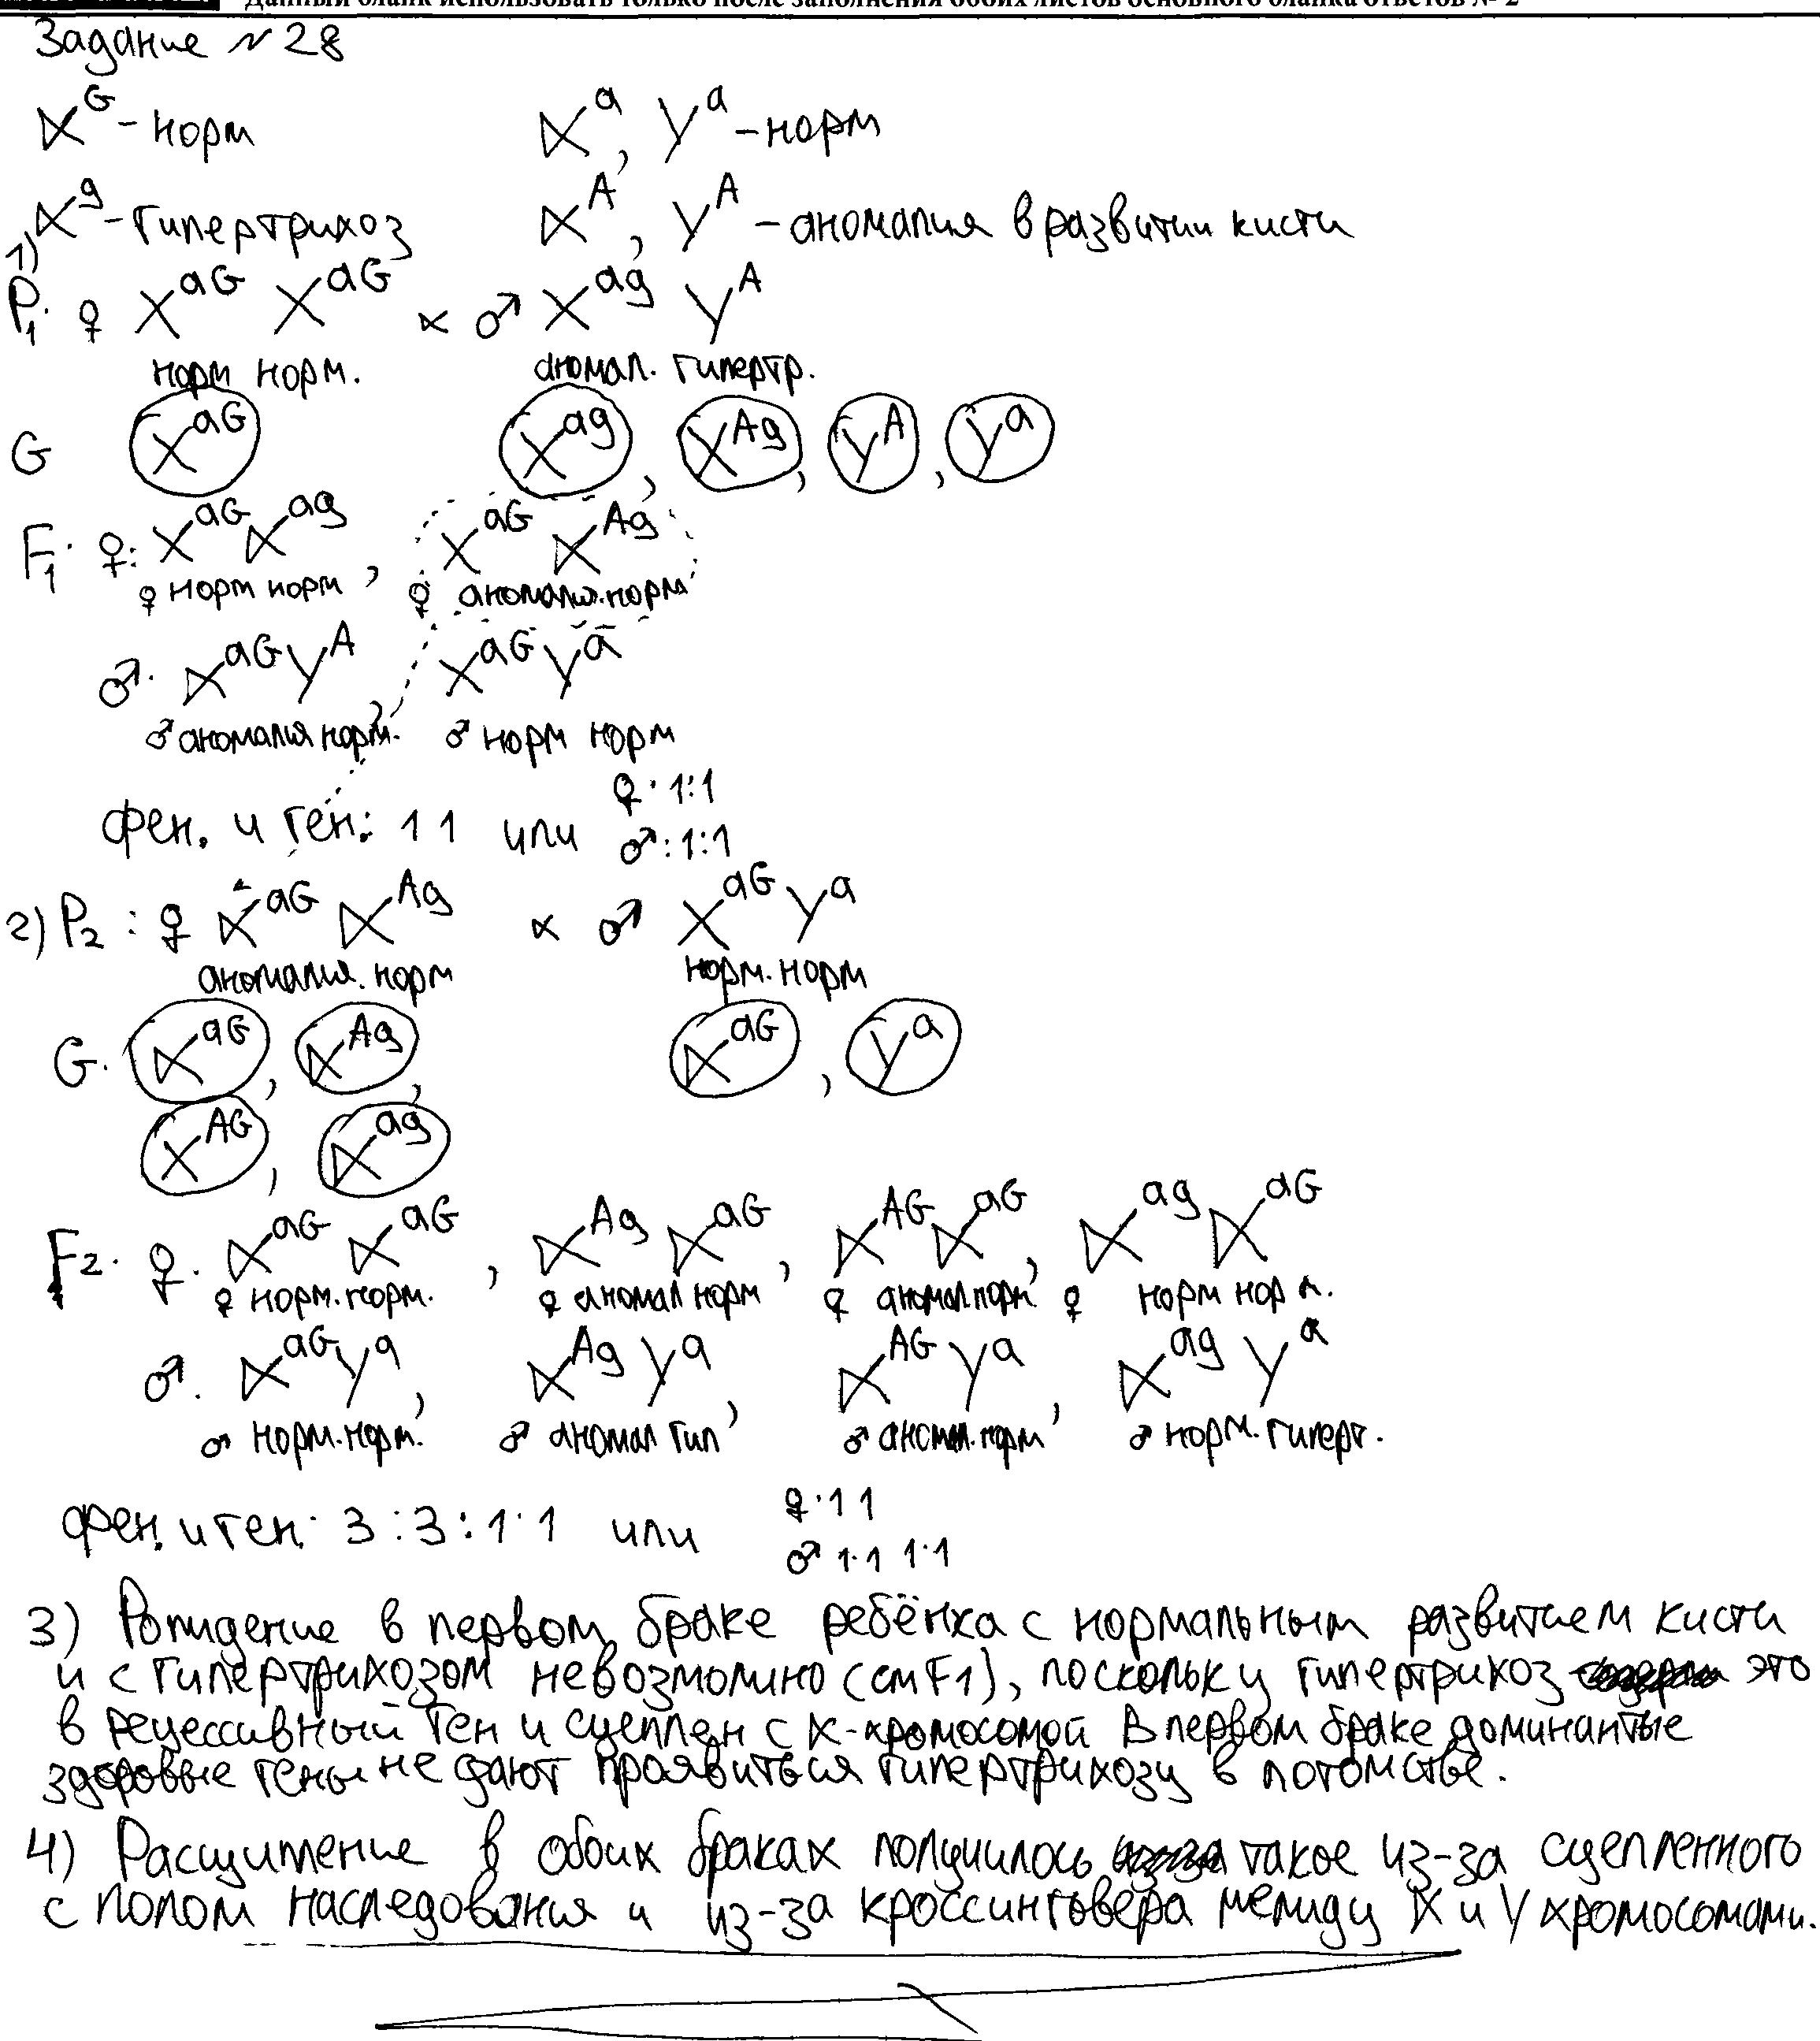 Данный бланк использовать только после заполнения обоих листов основного бланка ответов № 2
Задание №28
X^G - норм X^a, Y^a - норм
X^g - гипертрихоз X^A, Y^A - аномалия в развитии кисти
1)
P1: ♀ X^aG X^aG × ♂ X^ag Y^A
норм норм. аномал. гипертр.
G X^aG X^ag, X^Ag, Y^A, Y^a
F1: ♀: X^aG X^ag, X^aG X^Ag
♀ норм норм ♀ аномалия. норм
♂: X^aG Y^A, X^aG Y^a
♂ аномалия норм. ♂ норм норм
♀: 1:1
фен. и ген.: 1 1 или ♂: 1:1
2) P2: ♀ X^aG X^Ag × ♂ X^aG Y^a
аномалия. норм норм. норм
G. X^aG, X^Ag, X^aG, Y^a
X^AG, X^ag
F2. ♀. X^aG X^aG, X^Ag X^aG, X^AG X^aG, X^ag X^aG
♀ норм. норм. ♀ аномал норм ♀ аномал норм ♀ норм норм.
♂. X^aG Y^a, X^Ag Y^a, X^AG Y^a, X^ag Y^a
♂ норм. норм. ♂ аномал гип ♂ аномал. норм ♂ норм. гиперт.
♀ · 1 1
фен. и ген. 3 : 3 : 1 · 1 или ♂ 1·1 1·1
3) Рождение в первом браке ребёнка с нормальным развитием кисти
и с гипертрихозом невозможно (см F1), поскольку гипертрихоз это
в рецессивный ген и сцеплен с X-хромосомой В первом браке доминантые
здоровые гены не дают проявиться гипертрихозу в потомстве.
4) Расщипление в обоих браках получилось такое из-за сцепленного
с полом наследования и из-за кроссинговера между X и Y хромосомами.